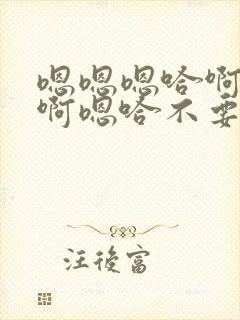 嗯嗯嗯哈啊
啊嗯哈不要
汪後富